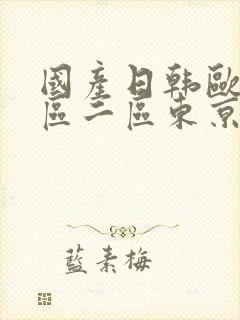 國產日韩歐
區二區東京
藍素梅